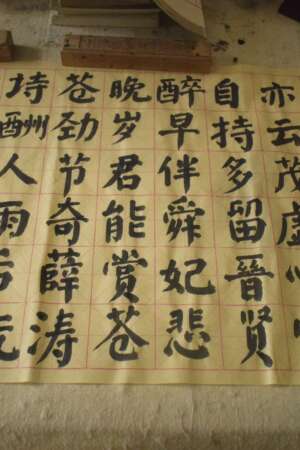 亦云茂虚心
自持多留晉贤
醉早伴舜妃悲
晚岁君能赏苍
苍劲节奇薛涛
酬人雨后